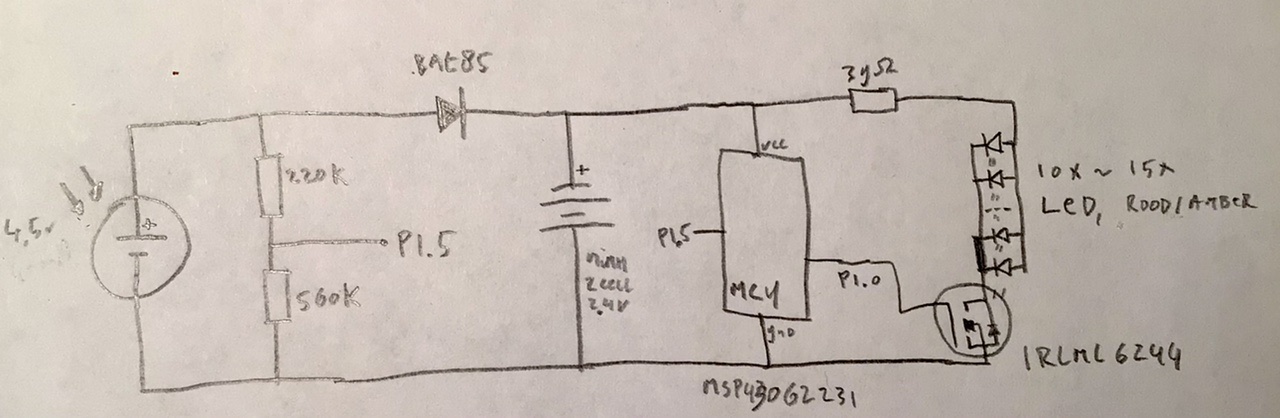 BAT85
39Ω
4,5v
+
220K
P1.5
560K
+
nimh
2 cell
2,4V
vcc
P1.5
MCU
gnd
P1.0
MSP430G2231
10x ~ 15x
LeD, ROOD/AMBER
IRLML6244